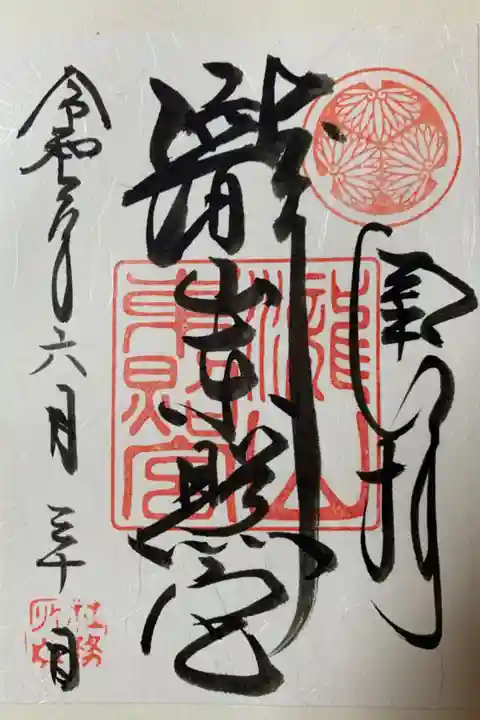 奉拝
瀧山東照宮
令和元年六月三十日
瀧山
東照宮
社務
所印